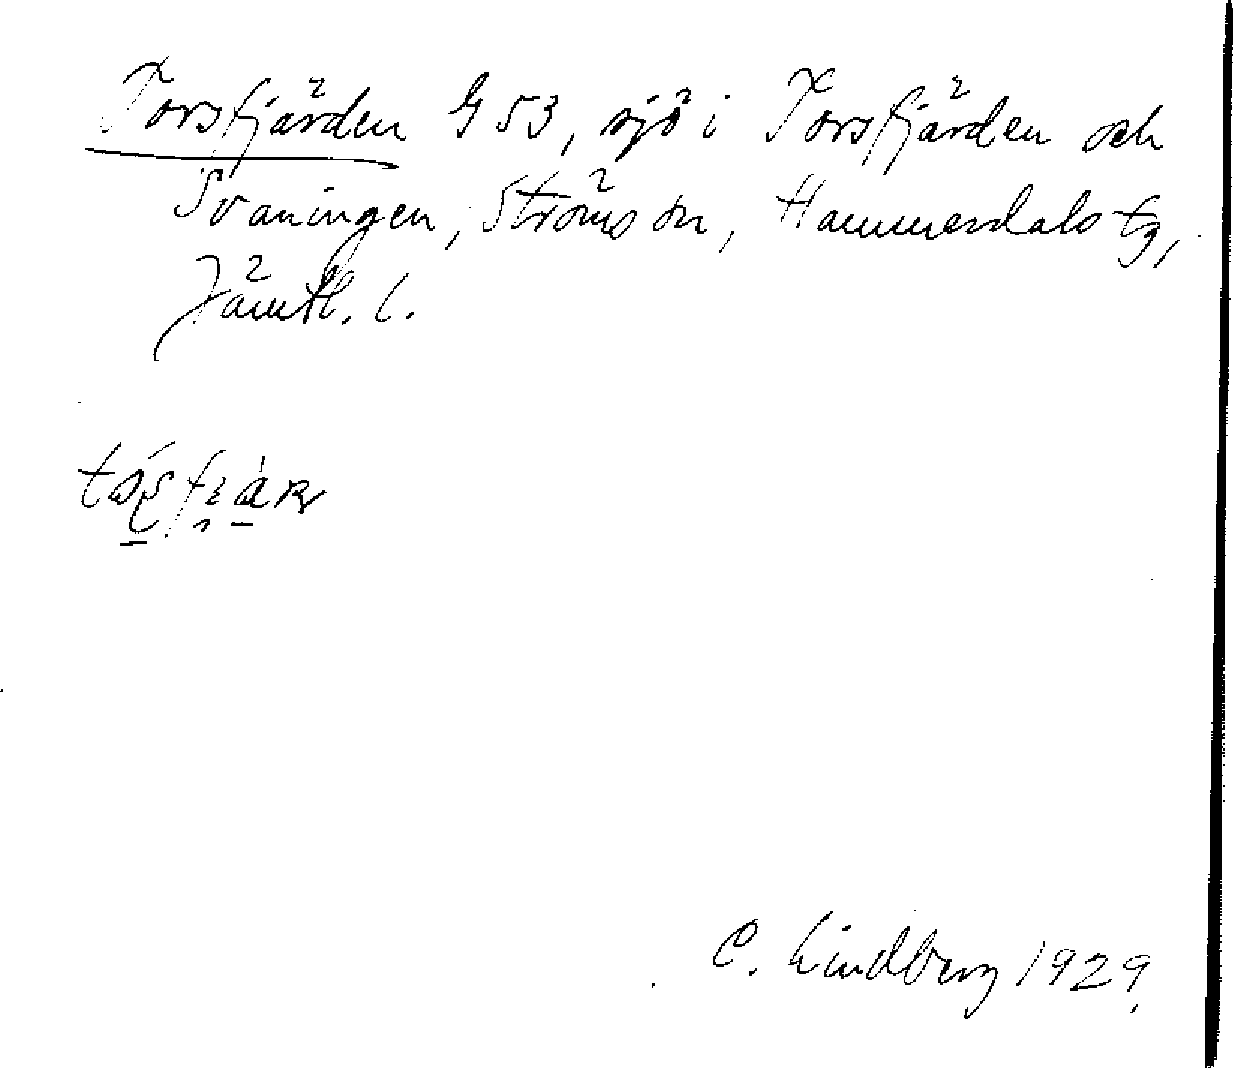 Torsfjärden G 53, sjö i Torsfjärden och
Svaningen, Ströms sn, Hammerdals tg,
Jämtl. l.
C. Lindberg 1929.